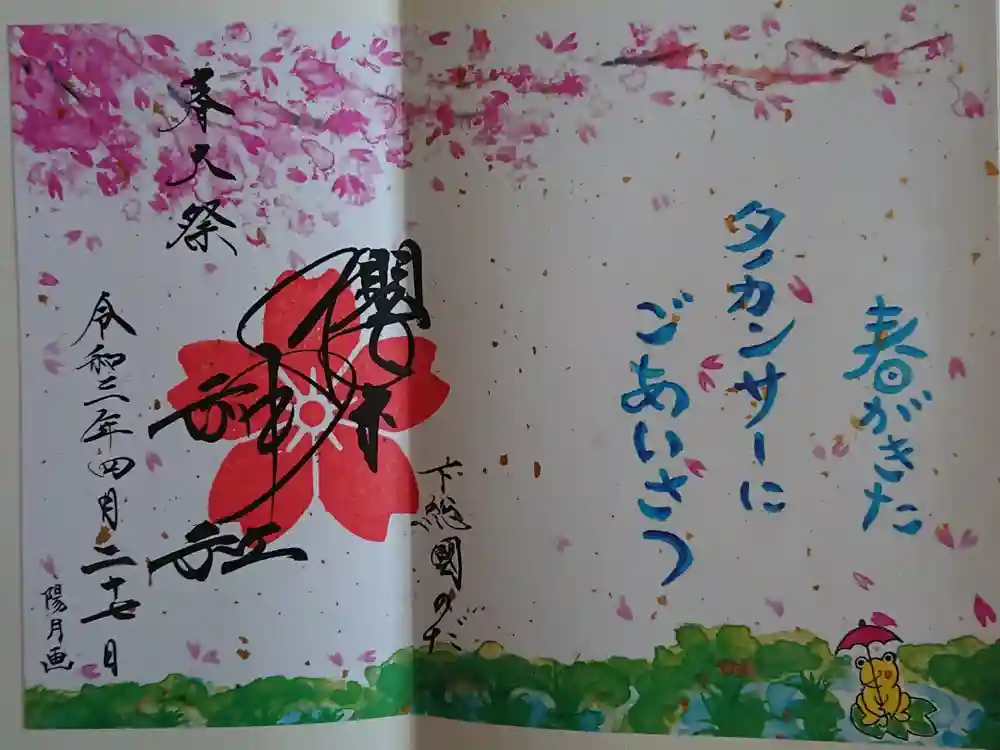 春がきた
タノカンサーに
ごあいさつ
下総國のだ
櫻木
神社
春大祭
令和三年四月二十七日
陽月画